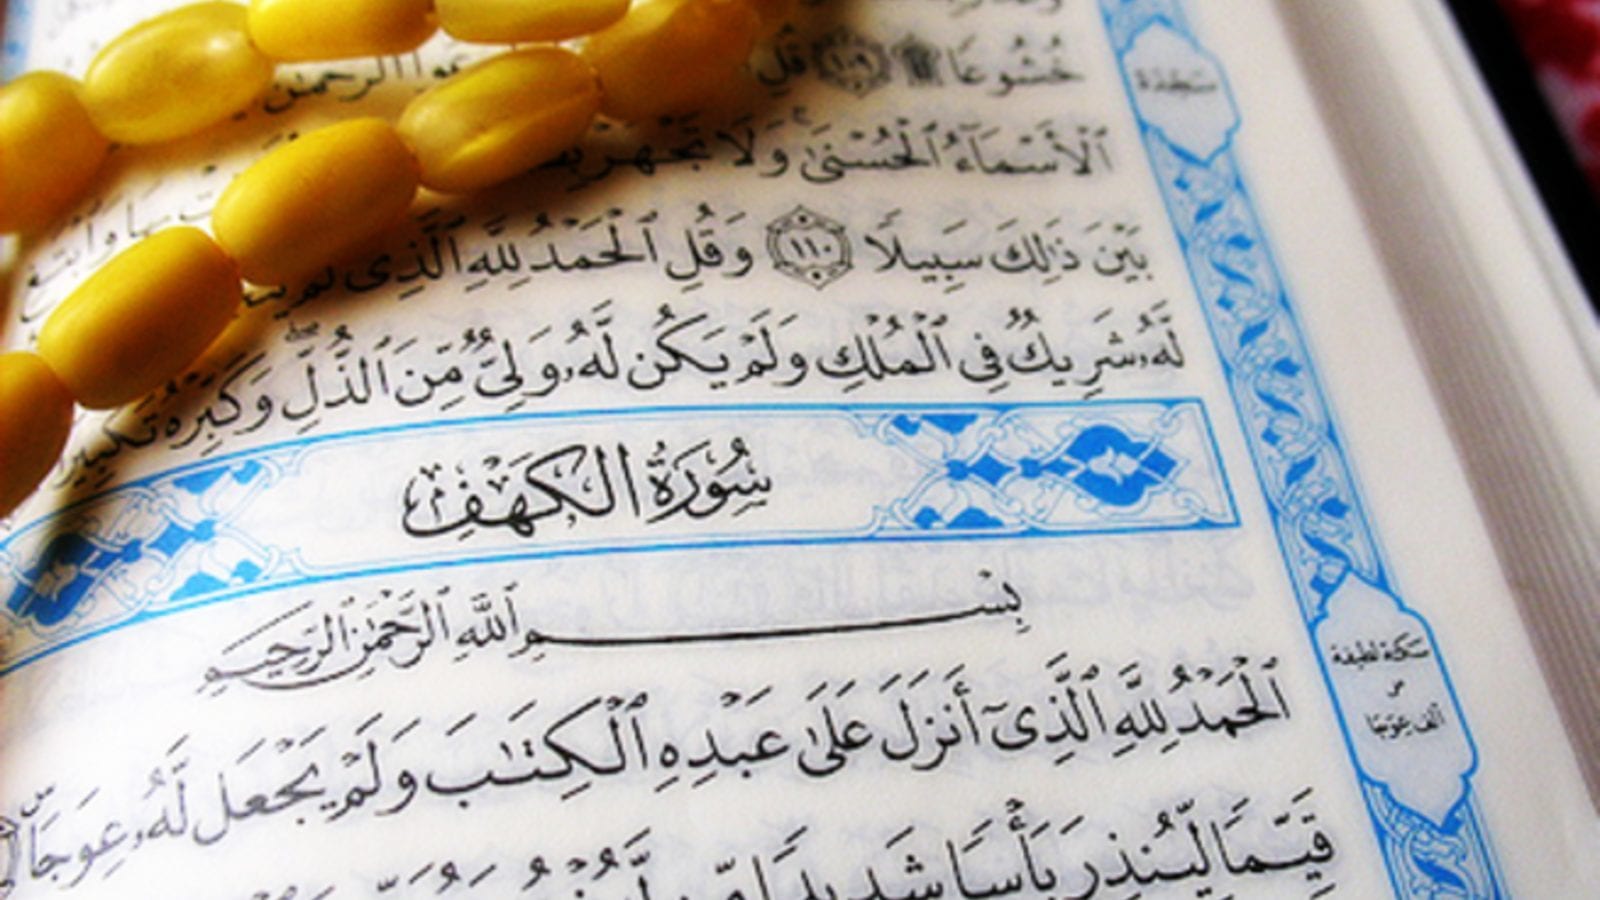 خُشُوعًا ۩ ﴿١٠٩﴾ قُلِ
ٱلْأَسْمَآءُ ٱلْحُسْنَىٰ ۚ وَلَا تَجْهَرْ
بَيْنَ ذَٰلِكَ سَبِيلًا ﴿١١٠﴾ وَقُلِ ٱلْحَمْدُ لِلَّهِ ٱلَّذِى لَمْ
لَّهُۥ شَرِيكٌ فِى ٱلْمُلْكِ وَلَمْ يَكُن لَّهُۥ وَلِىٌّ مِّنَ ٱلذُّلِّ ۖ وَكَبِّرْهُ تَكْبِيرًا
سُورَةُ الكَهْفِ
بِسْمِ ٱللَّهِ ٱلرَّحْمَٰنِ ٱلرَّحِيمِ
ٱلْحَمْدُ لِلَّهِ ٱلَّذِىٓ أَنزَلَ عَلَىٰ عَبْدِهِ ٱلْكِتَٰبَ وَلَمْ يَجْعَل لَّهُۥ عِوَجَاۜ
قَيِّمًا لِّيُنذِرَ بَأْسًا شَدِيدًا
سجدة
سكتة لطيفة
على
ألف عوجا